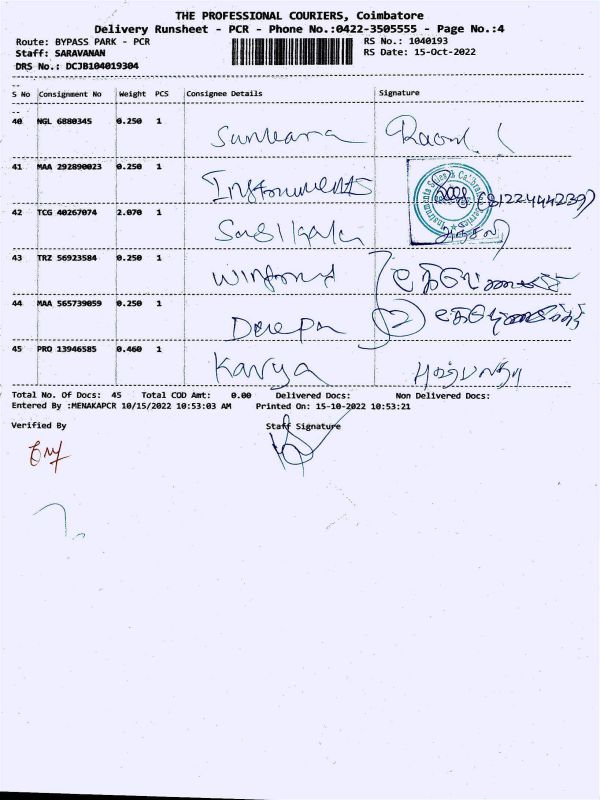 THE PROFESSIONAL COURIERS, Coimbatore
Delivery Runsheet - PCR - Phone No.:0422-3505555 - Page No.:4
Route: BYPASS PARK - PCR RS No.: 1040193
Staff: SARAVANAN RS Date: 15-Oct-2022
DRS No.: DCJB104019304
S No Consignment No Weight PCS Consignee Details Signature
40 NGL 6880345 0.250 1
41 MAA 292890023 0.250 1 Instruments
42 TCG 40267074 2.070 1
43 TRZ 56923584 0.250 1
44 MAA 565739059 0.250 1 Deepa 2
45 PRO 13946585 0.460 1 Kavya
Total No. Of Docs: 45 Total COD Amt: 0.00 Delivered Docs: Non Delivered Docs:
Entered By :MENAKAPCR 10/15/2022 10:53:03 AM Printed On: 15-10-2022 10:53:21
Verified By Staff Signature